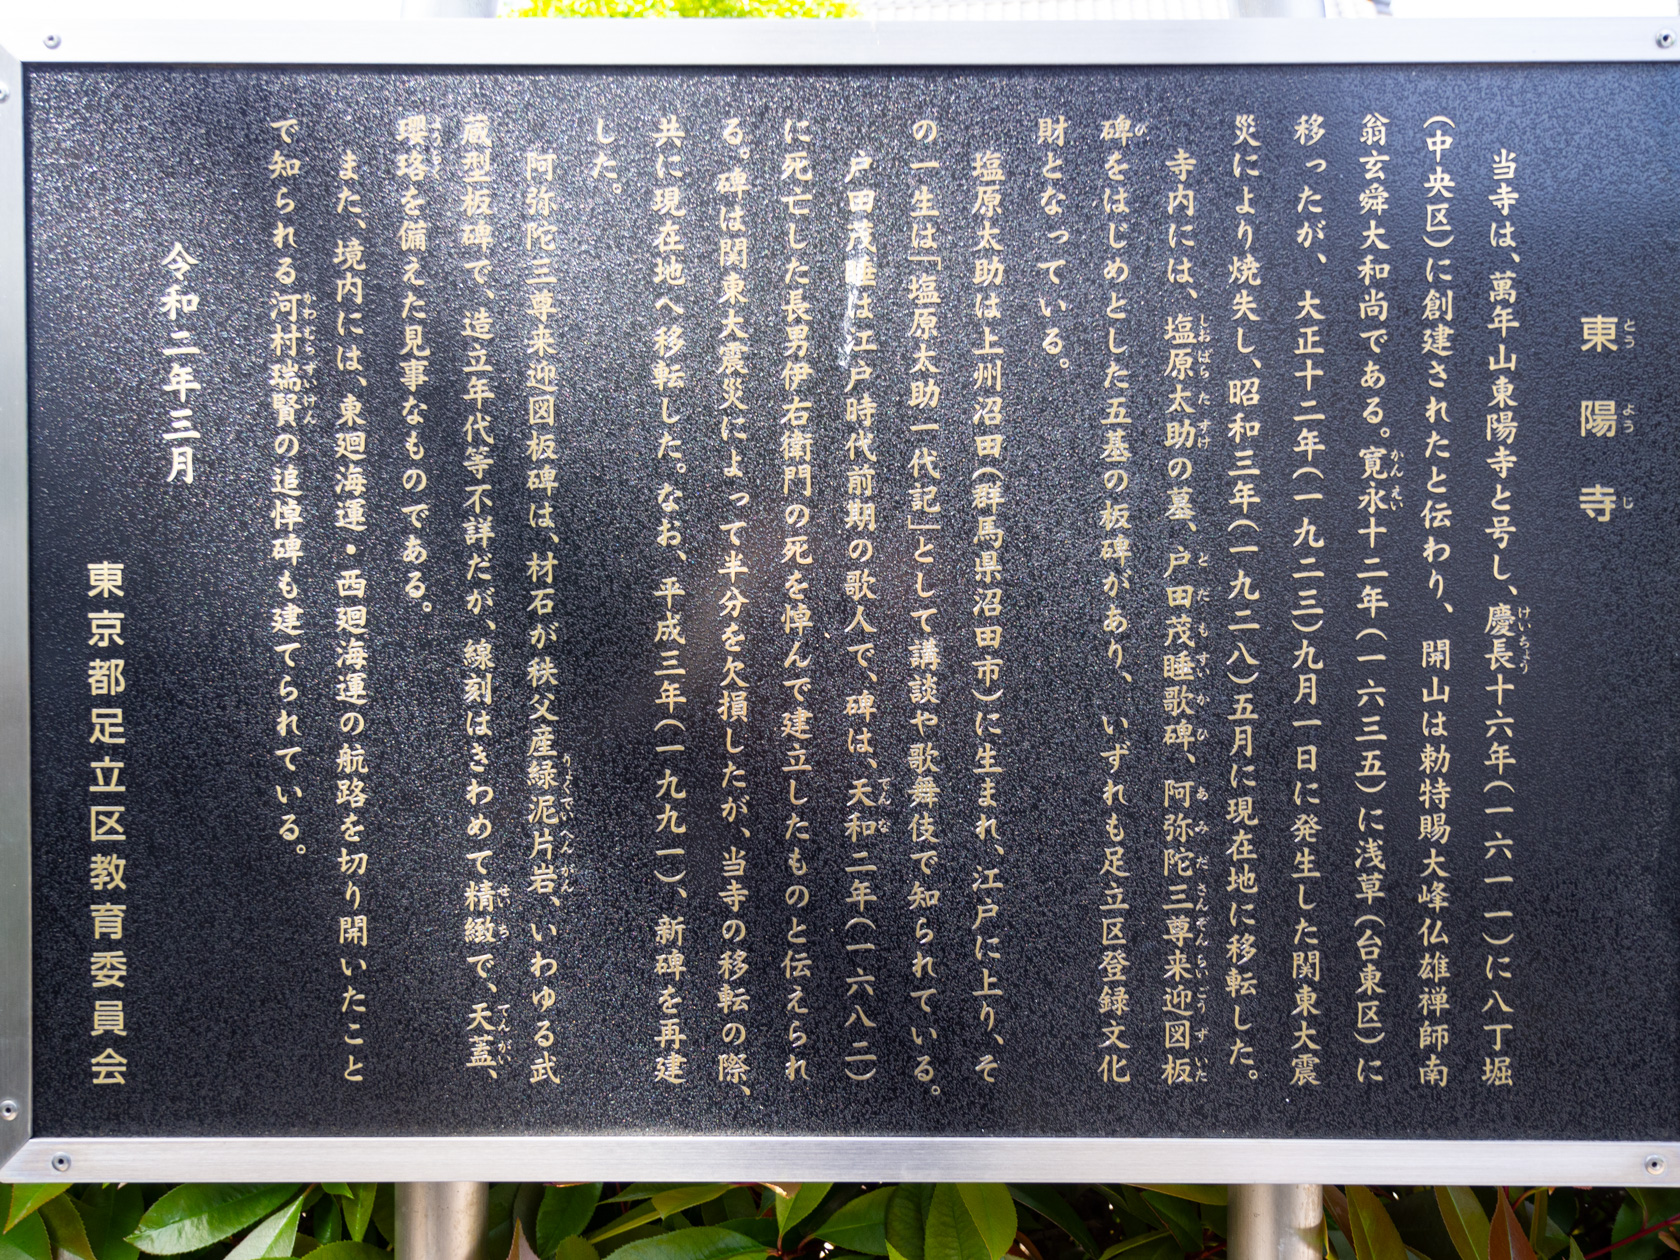 東陽寺
とうようじ
当寺は、萬年山東陽寺と号し、慶長十六年(一六一一)に八丁堀
けいちょう
(中央区)に創建されたと伝わり、開山は勅特賜大峰仏雄禅師南
翁玄舜大和尚である。寛永十二年(一六三五)に浅草(台東区)に
かんえい
移ったが、大正十二年(一九二三)九月一日に発生した関東大震
災により焼失し、昭和三年(一九二八)五月に現在地に移転した。
寺内には、塩原太助の墓、戸田茂睡歌碑、阿弥陀三尊来迎図板
しおばらたすけ とだもすいかひ あみださんぞんらいごうずいた
碑をはじめとした五基の板碑があり、いずれも足立区登録文化
び
財となっている。
塩原太助は上州沼田(群馬県沼田市)に生まれ、江戸に上り、そ
の一生は「塩原太助一代記」として講談や歌舞伎で知られている。
戸田茂睡は江戸時代前期の歌人で、碑は、天和二年(一六八二)
てんな
に死亡した長男伊右衛門の死を悼んで建立したものと伝えられ
る。碑は関東大震災によって半分を欠損したが、当寺の移転の際、
共に現在地へ移転した。なお、平成三年(一九九一)、新碑を再建
した。
阿弥陀三尊来迎図板碑は、材石が秩父産緑泥片岩、いわゆる武
りょくでいへんがん
蔵型板碑で、造立年代等不詳だが、線刻はきわめて精緻で、天蓋、
せいち てんがい
瓔珞を備えた見事なものである。
ようらく
また、境内には、東廻海運・西廻海運の航路を切り開いたこと
で知られる河村瑞賢の追悼碑も建てられている。
かわむらずいけん
令和二年三月
東京都足立区教育委員会